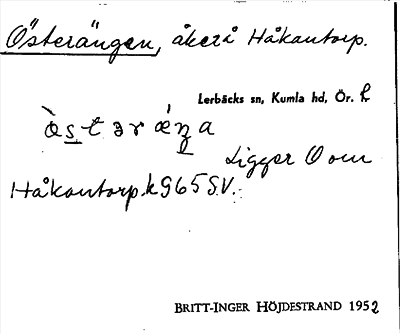 Österängen, åker å Håkantorp.
Lerbäcks sn, Kumla hd, Ör. l
ò̀s̲t ər ǽŋa
Ligger O om
Håkantorp. k965S.V.
BRITT-INGER HÖJDESTRAND 1952